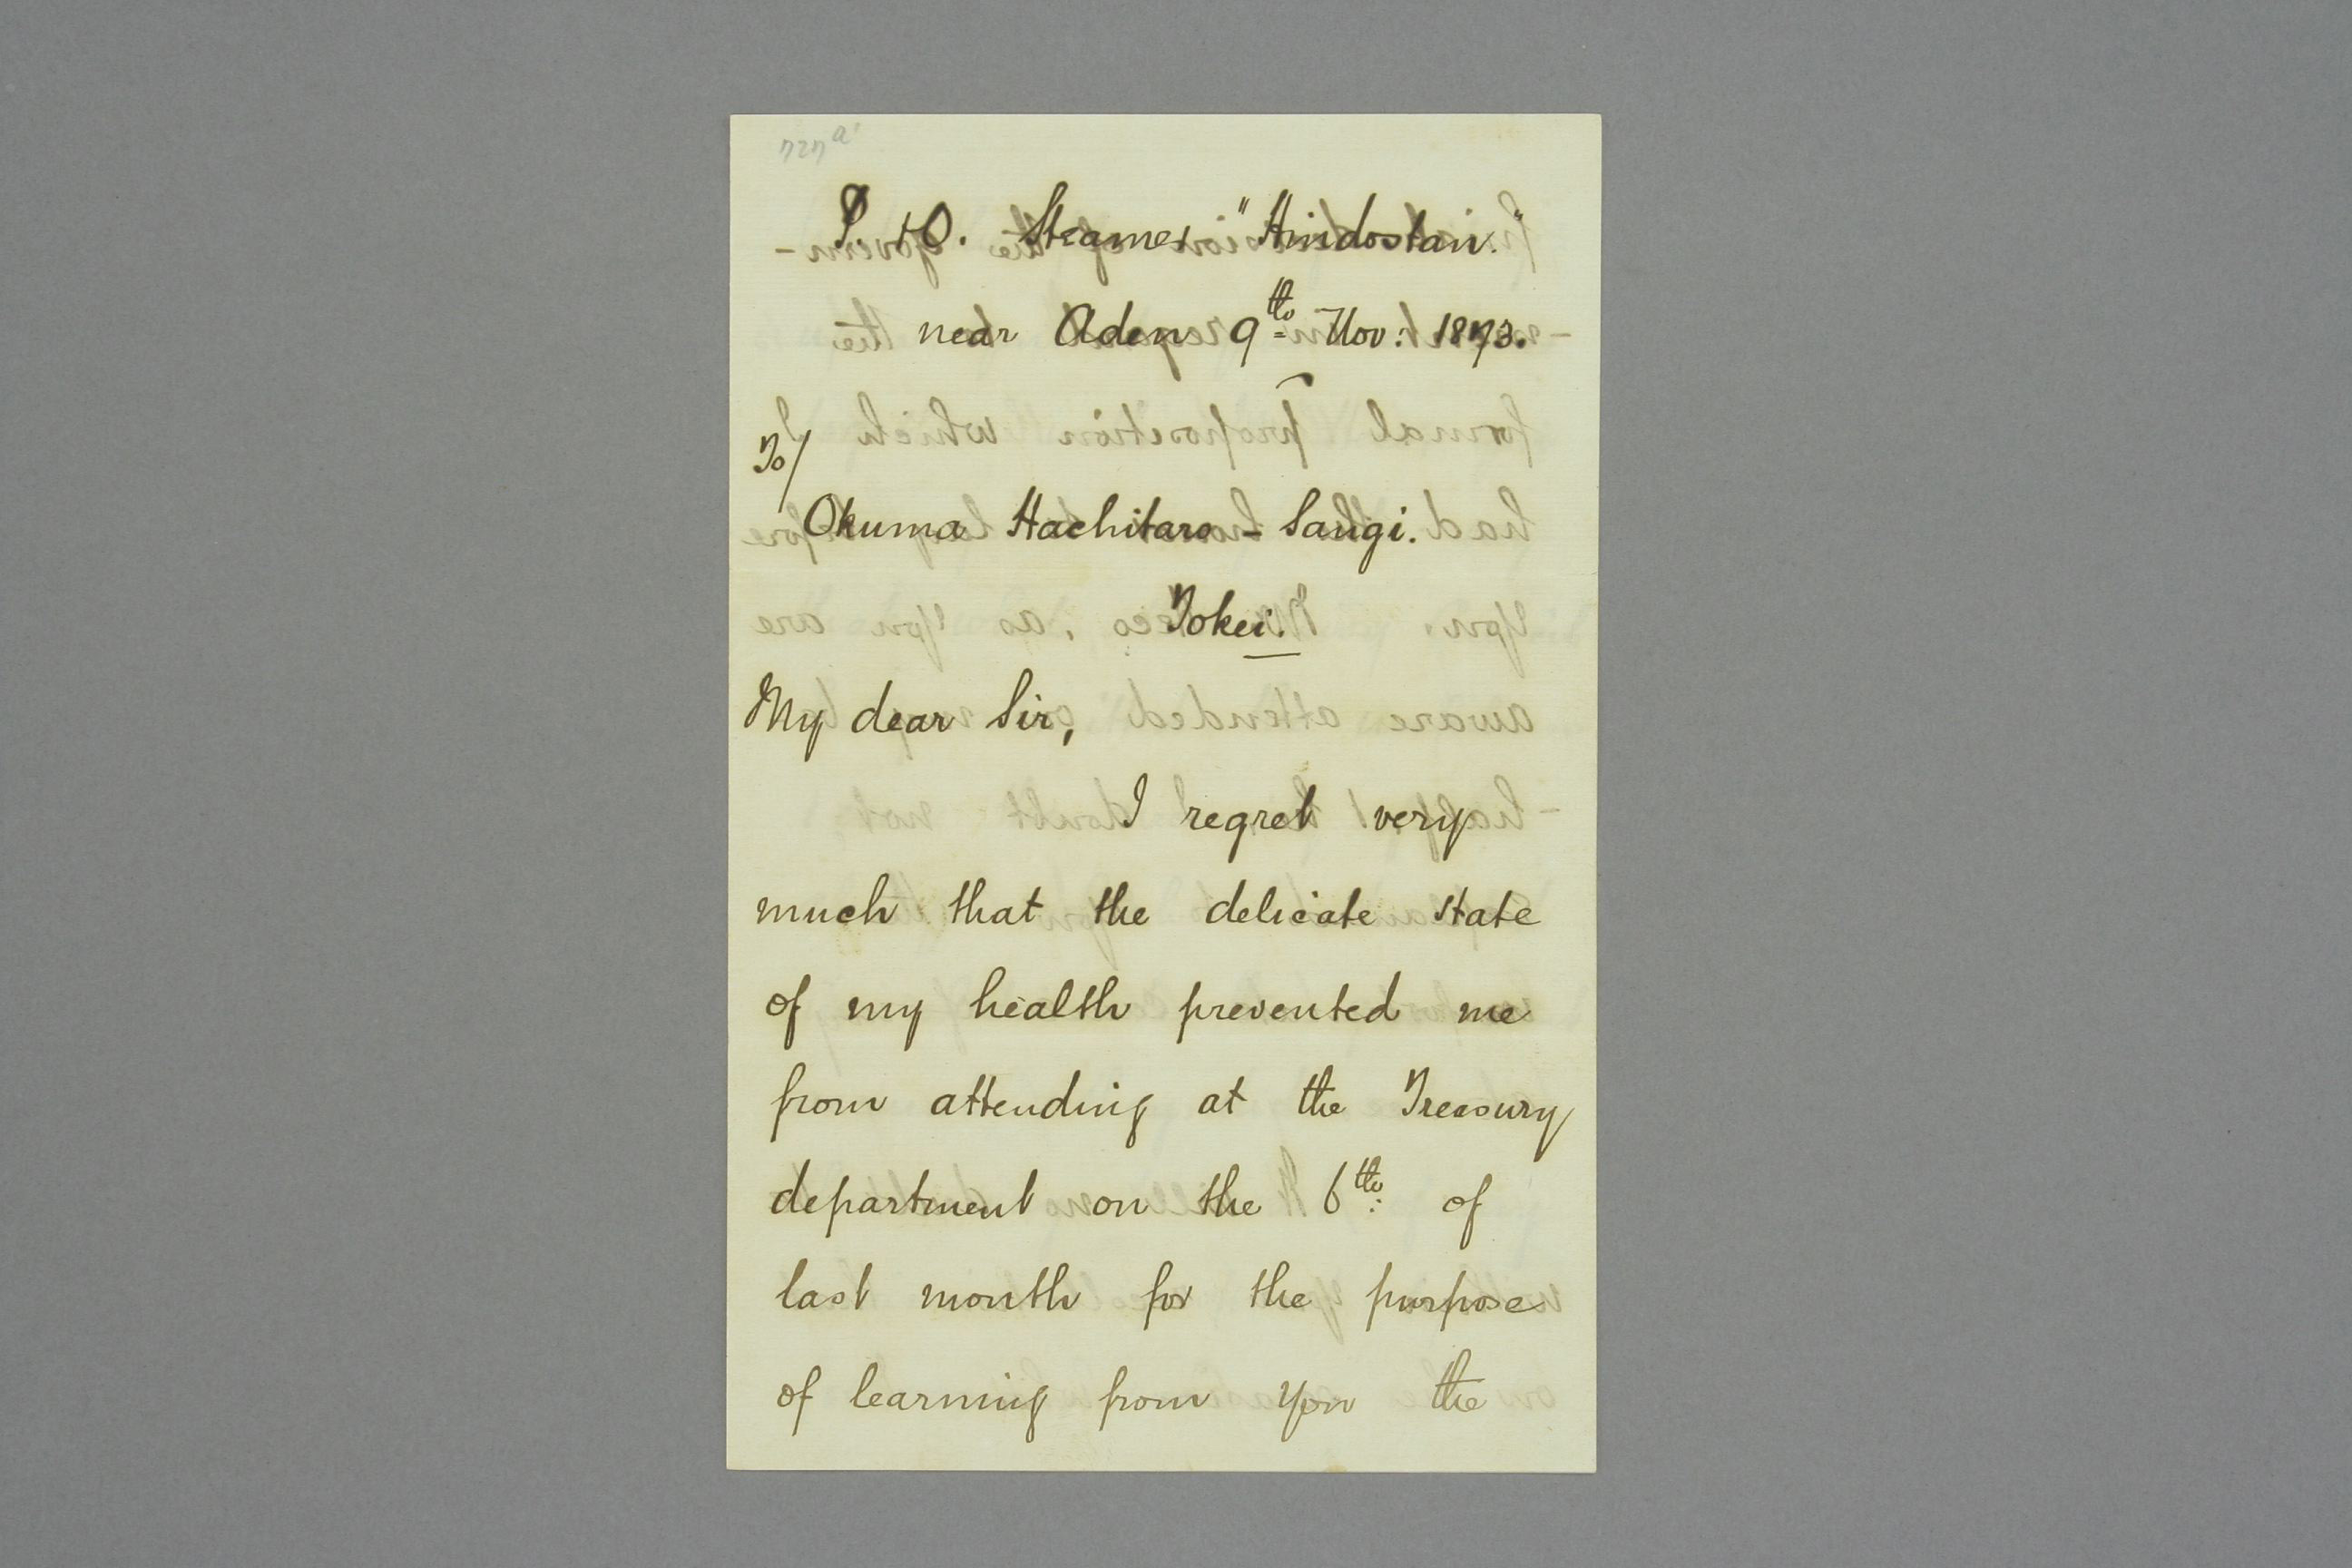 727a
P. & O. Steamer "Hindostan."
near Aden 9th Nov: 1873.
To/
Okuma Hachitaro - Sangi.
Tokei.
My dear Sir,
I regret very
much that the delicate state
of my health prevented me
from attending at the Treasury
department on the 6th: of
last month for the purpose
of learning from you the